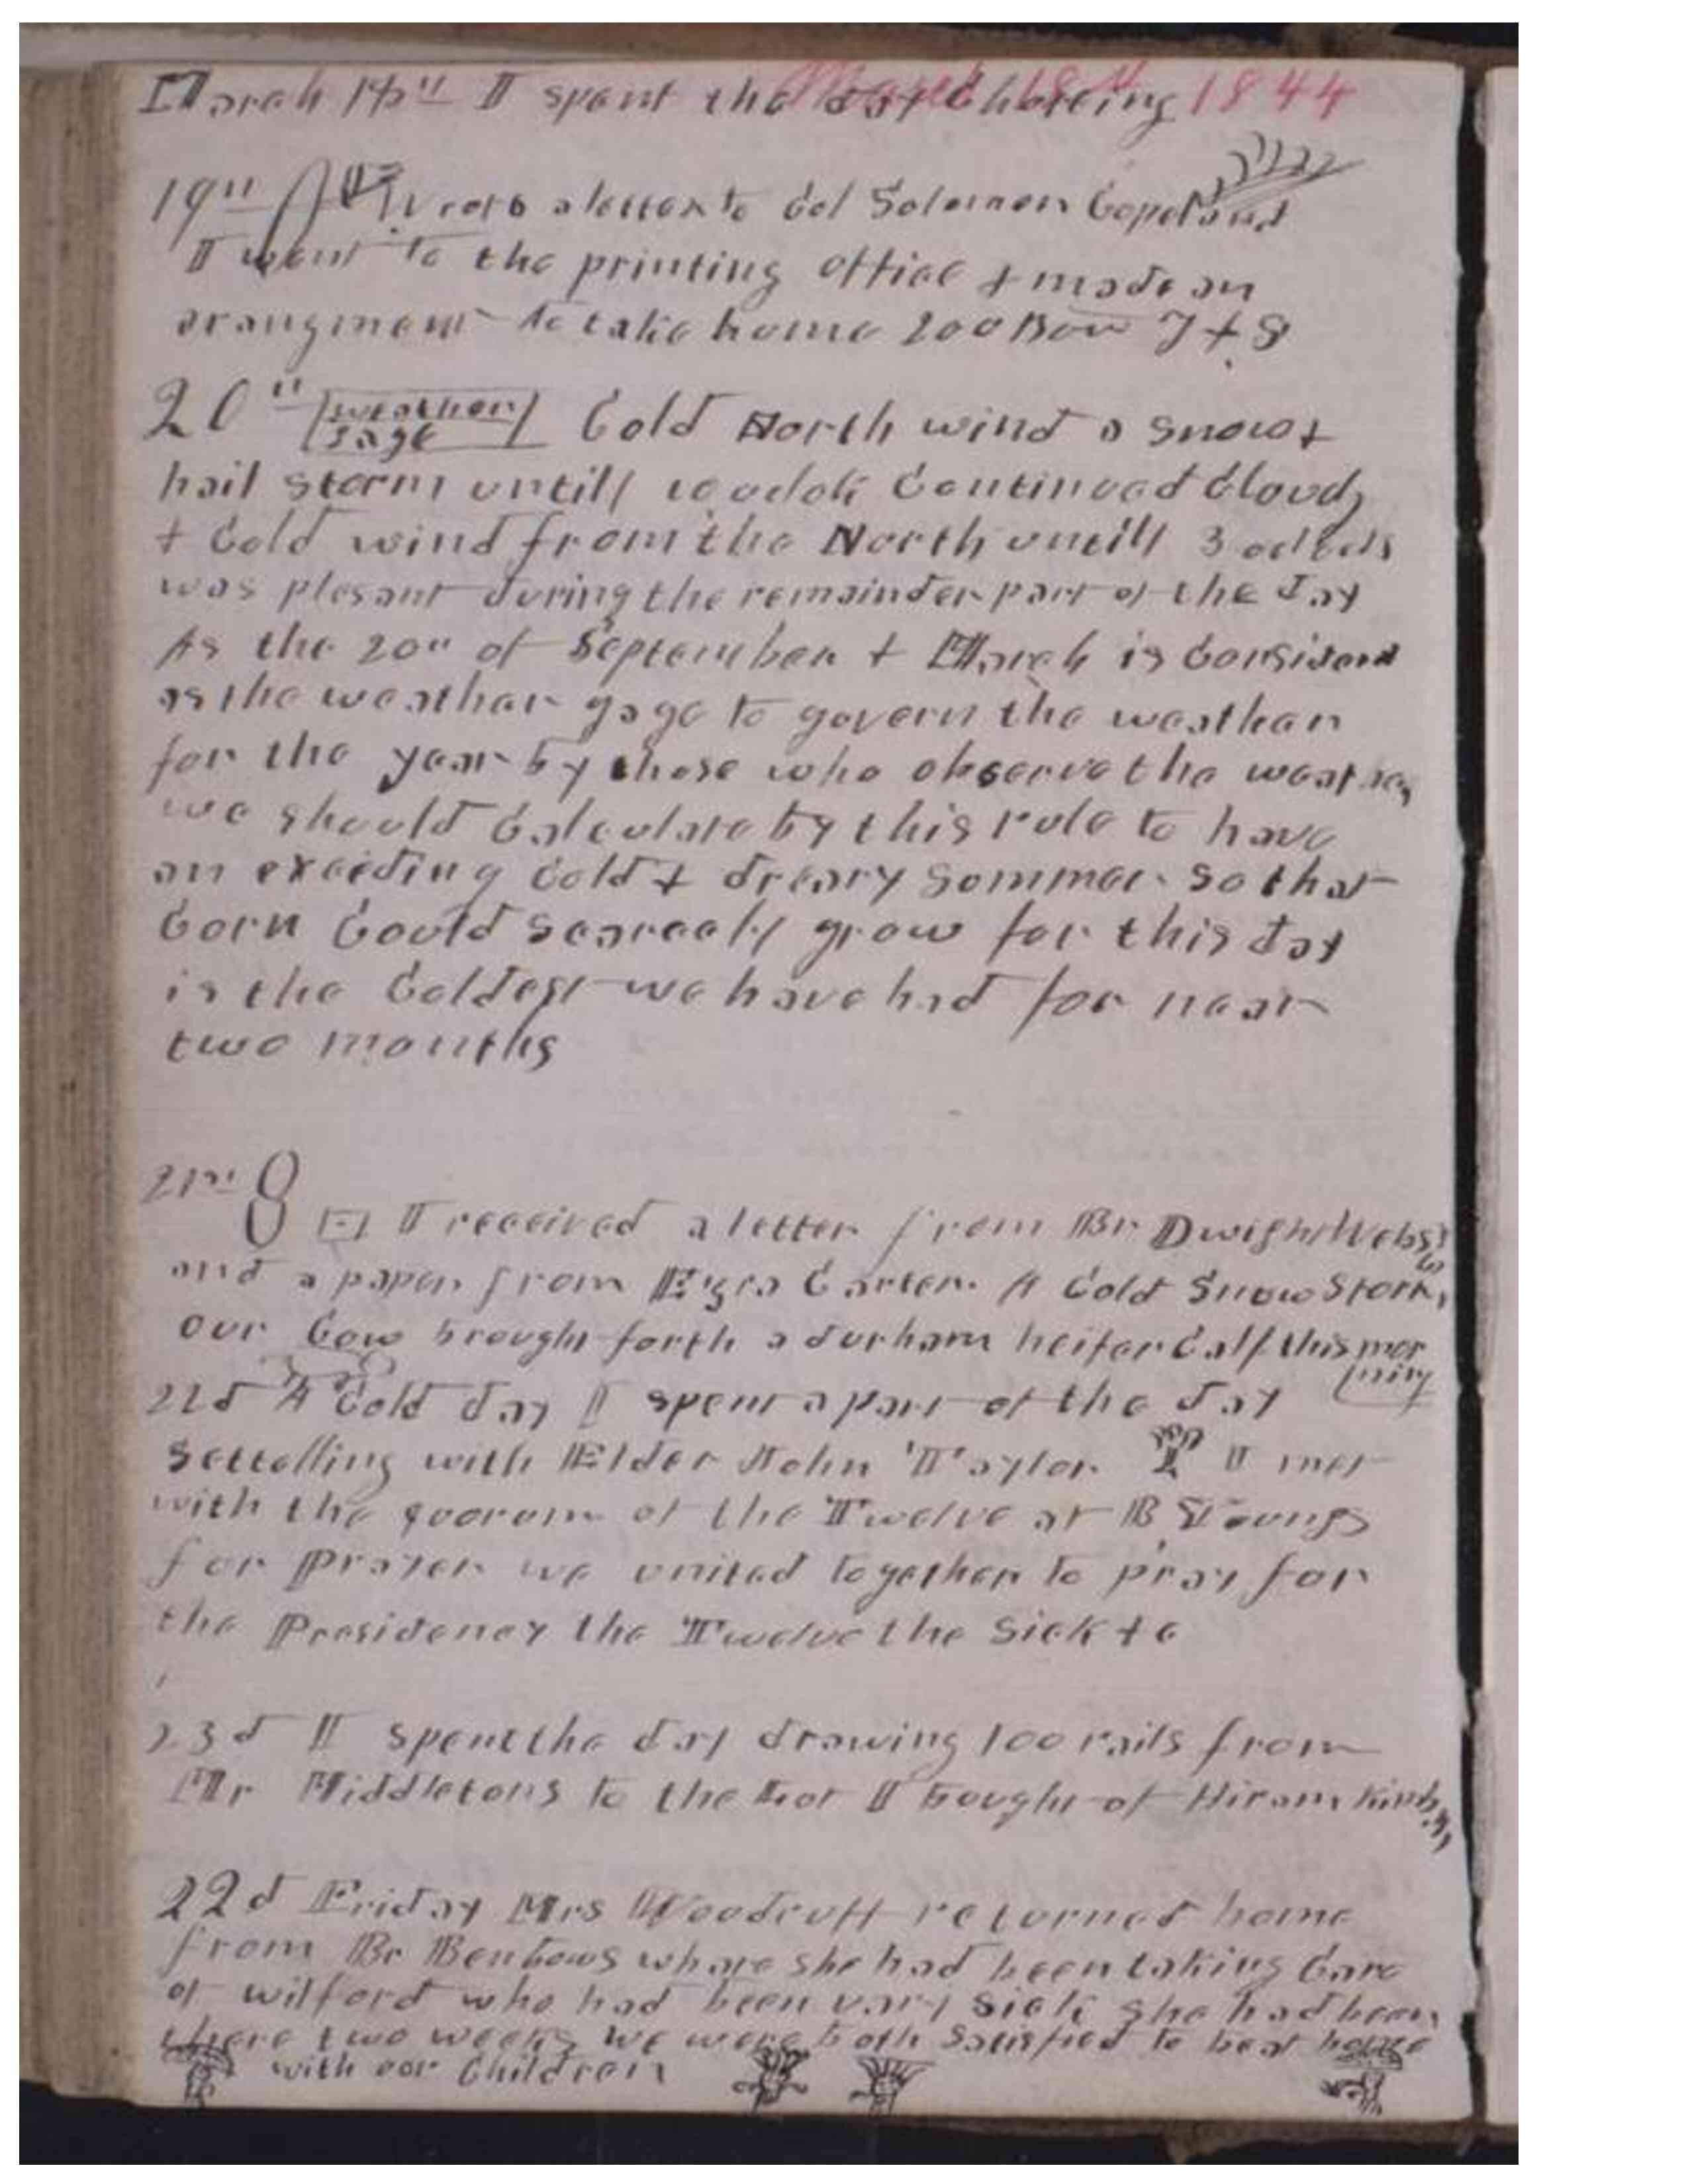 March 18th I spent the day Choreing
March 18th 1844
19th I wrote a letter to Col Solomon Copeland
I went to the printing office & made an
arangment to take home 200 Bow 7 & 8
20th weather
gage Cold North wind a snow &
hail storm untill 10 oclok Continued Cloudy
& Cold wind from the North untill 3 oclock
was plesant during the remainder part of the day
As the 20th of September & March is Considered
as the weather gage to govern the weather
for the year by those who observe the weather
we should Calculate by this rule to have
an exceeding Cold & dreary Sommer so that
Corn Could scarcely grow for this day
is the Coldest we have had for near
two months
21st I received a letter from Br Dwight Webster
and a paper from Ezra Carter. A Cold Snow Storm,
our Cow brought forth a durham heifer Calf this mor
ning
22d A Cold day I spent a part of the day
settelling with Elder John Taylor I met
with the quorum of the Twelve at B Youngs
for Prayer we united together to pray for
the Presidency the Twelve the Sick &c
23d II spent the day drawing 100 rails from
Mr Middletons to the Lot I bought of Hiram Kimball
22d Friday Mrs Woodruff returned home
from Br Benbows whare she had been taking Care
of wilford who had been vary Sick she had been
there two weeks we were both satisfied to be at home
with our Children